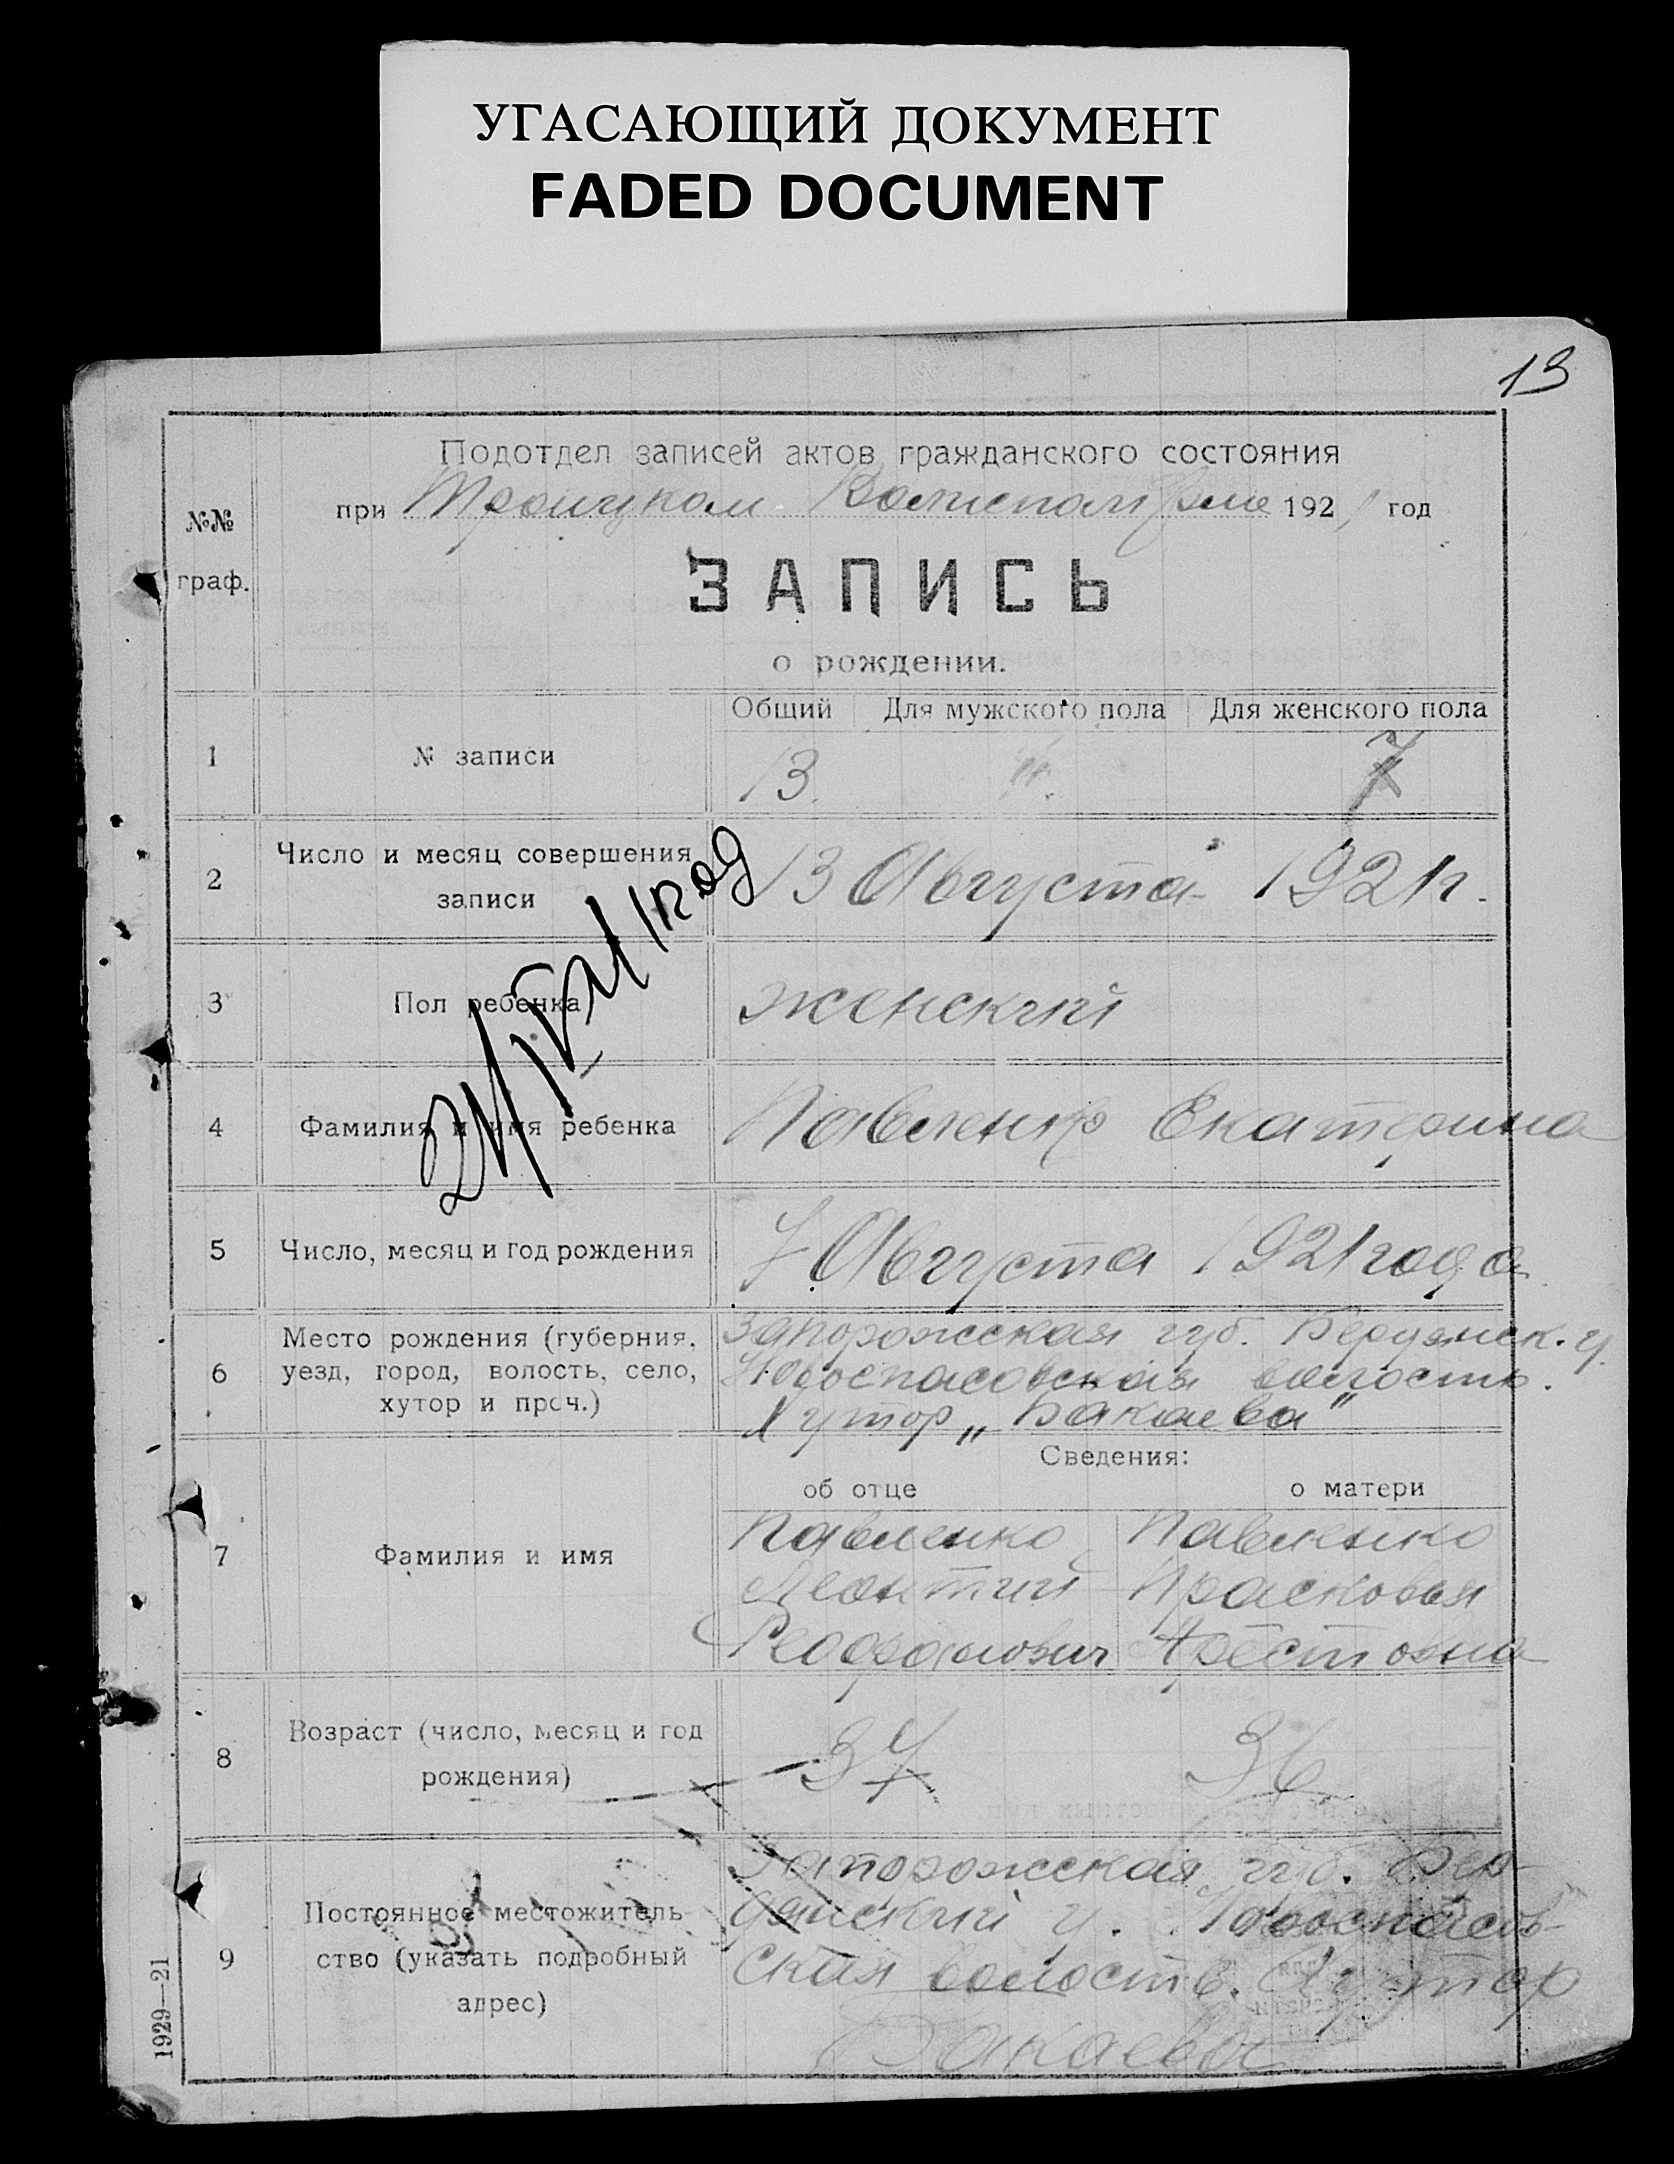 УГАСАЮЩИЙ ДОКУМЕНТ
FADED DOCUMENT
13
Подотдел записей актов гражданского состояния
при Троицком 1921 год
№№
граф.
ЗАПИСЬ
о рождении.
Общий Для мужского пола Для женского пола
1 № записи 13. 7
2 Число и месяц совершения
записи
13 Августа 1921 г.
3 Пол ребенка женский
4 Фамилия и имя ребенка Павленко Екатерина
5 Число, месяц и год рождения 7 Августа 1921 года
6 Место рождения (губерния,
уезд, город, волость, село,
хутор и проч.)
Запорожская губ. Бердянск. у.
Новоспасовская волость.
Хутор „Бакаева"
Сведения:
об отце о матери
7 Фамилия и имя
Павленко Павленко
Леонтий Прасковья
8 Возраст (число, месяц и год
рождения)
37 36
9 Постоянное местожитель-
ство (указать подробный
адрес)
Запорожская губ. Бер-
дянский у. Новоспасов-
ская волость. Хутор
Бакаева
1929—21